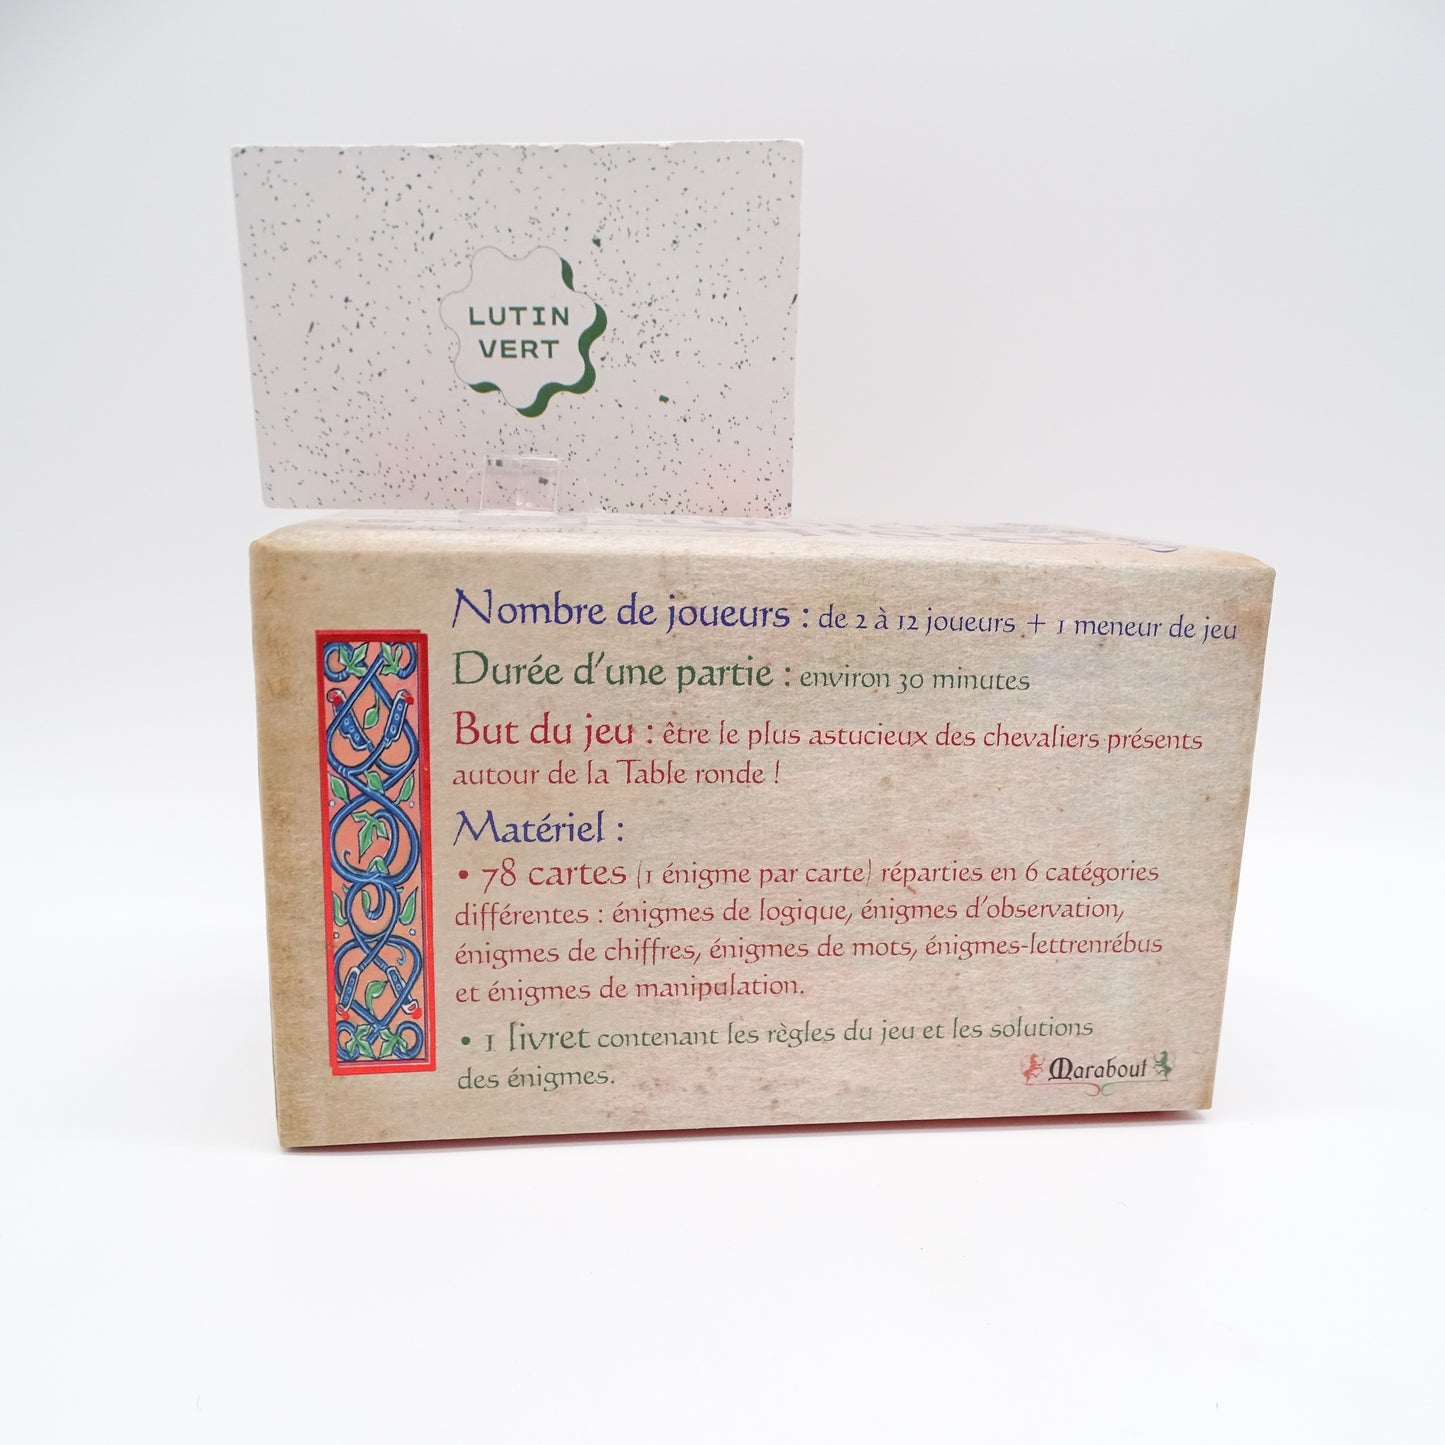 LUTIN
VERT
Nombre de joueurs : de 2 à 12 joueurs + 1 meneur de jeu
Durée d'une partie : environ 30 minutes
But du jeu : être le plus astucieux des chevaliers présents
autour de la Table ronde !
Matériel :
• 78 cartes (1 énigme par carte) réparties en 6 catégories
différentes : énigmes de logique, énigmes d'observation,
énigmes de chiffres, énigmes de mots, énigmes-lettrenrébus
et énigmes de manipulation.
• 1 livret contenant les règles du jeu et les solutions
des énigmes.
Marabout